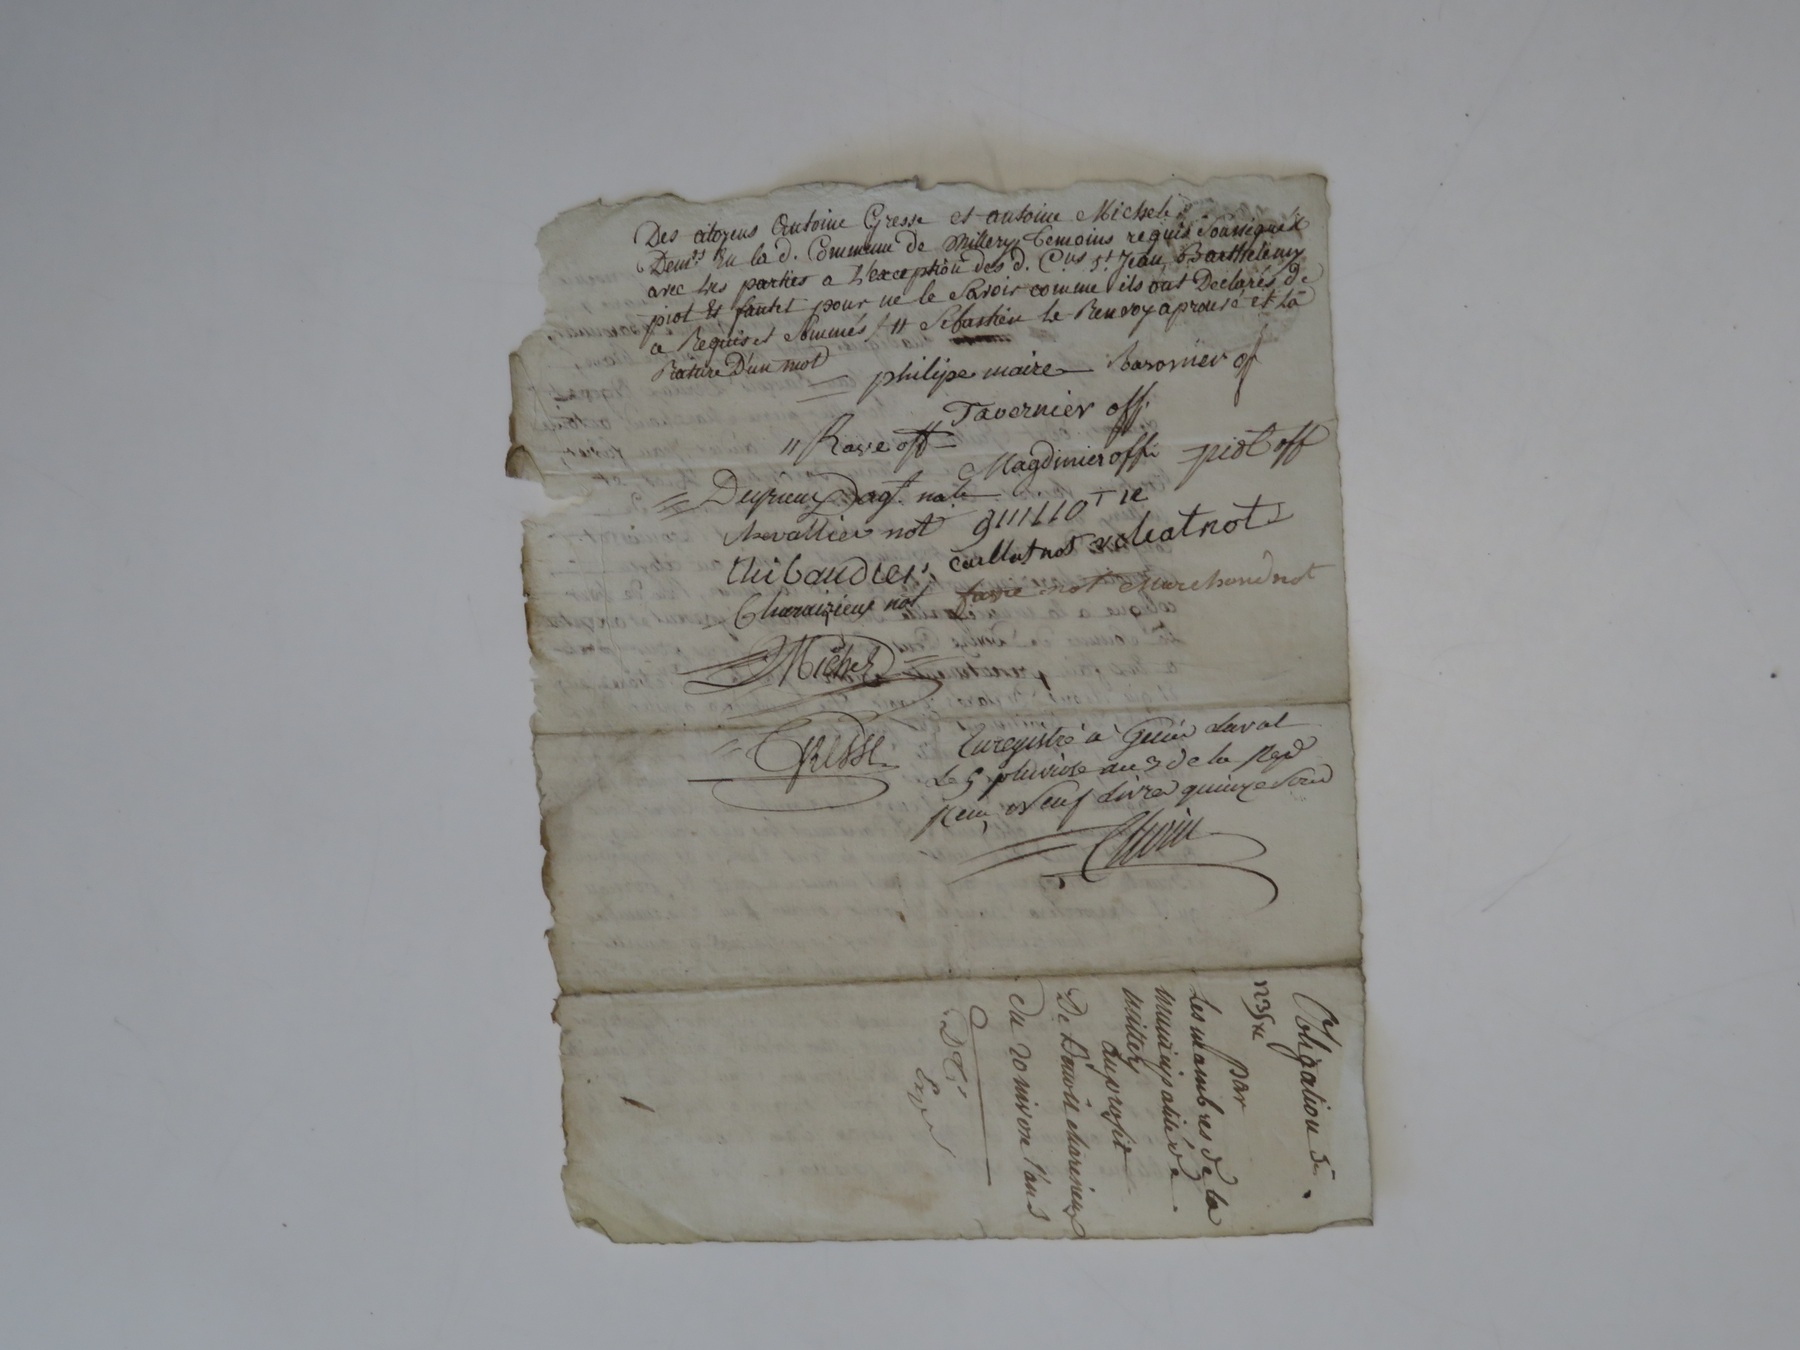 Des citoyens Antoine Gresse et antoine Michel
Demts en la d. Commune de Millery temoins requis Soussignés
avec les parties a L'exception des d. Cns St Jean, Barthelemy
piot et fantet pour ne le Savoir comme ils ont Declarés de
a Requis et Sommés / 11 Sebastien le Renvoy aprouvé et la
Rature D'un mot
philipe maire Baronnier of
Tavernier off
Rave off
Magdinier off piot off
agt. nal
chevallier not guillotie
thibaudier caillat not achat not
Charaizieux not favre not marchand not
Michel
GRESSE
Enregistré à Genis Laval
Le 5 pluviose an 3 de la Repe
Reçu Neuf Livres quinze Sous
Obligation
No
par
Les mambres de la
municipalité de
millery
au profit
De Benoît charesieux
Du 20 nivose l'an 3